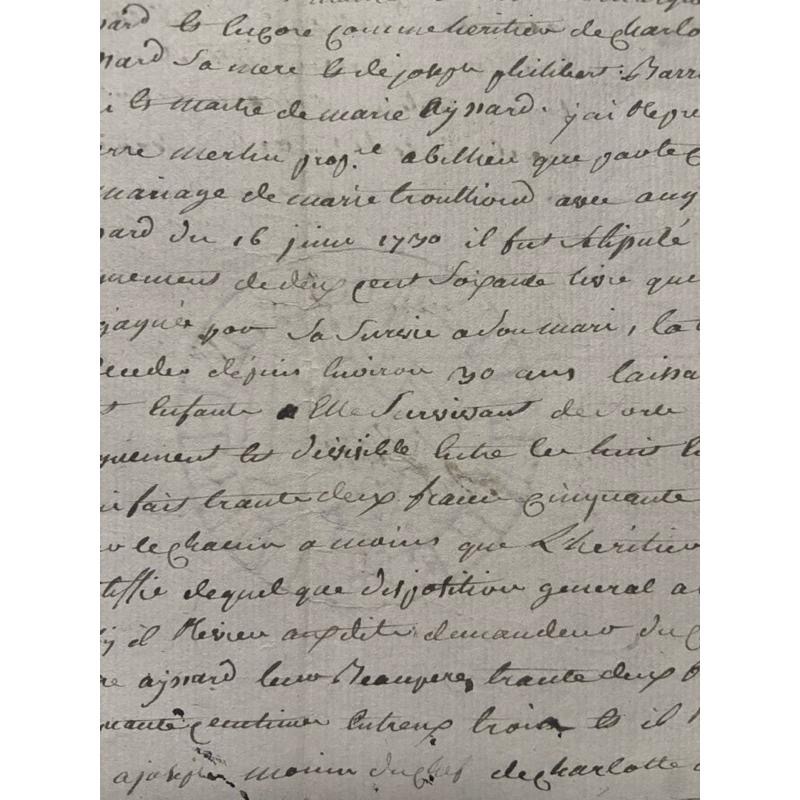 et encore comme heritier de charlo
sard sa mere et de joseph philibert Barr
et maitre de marie Aynard. j'ai repre
erre merlin prop.re abilieu que par le c
mariage de marie trouilloud avec ay
nard du 16 juin 1730 il fut stipulé
de deux cent soixante livre que
gagnés par sa survie a son mari, la
decedes depuis environ 30 ans laissa
t enfants elle survivant de sorte
et divisible entre les huit
i fait trante deux franc cinquante
le chacun a moins que l'heritier
tiffie de quel que disposition general a
y il revien aux dits demandeur du
re aynard leur Beaupere, trante deux
quante centimes entreux trois et il
a joseph monin du chef de charlotte